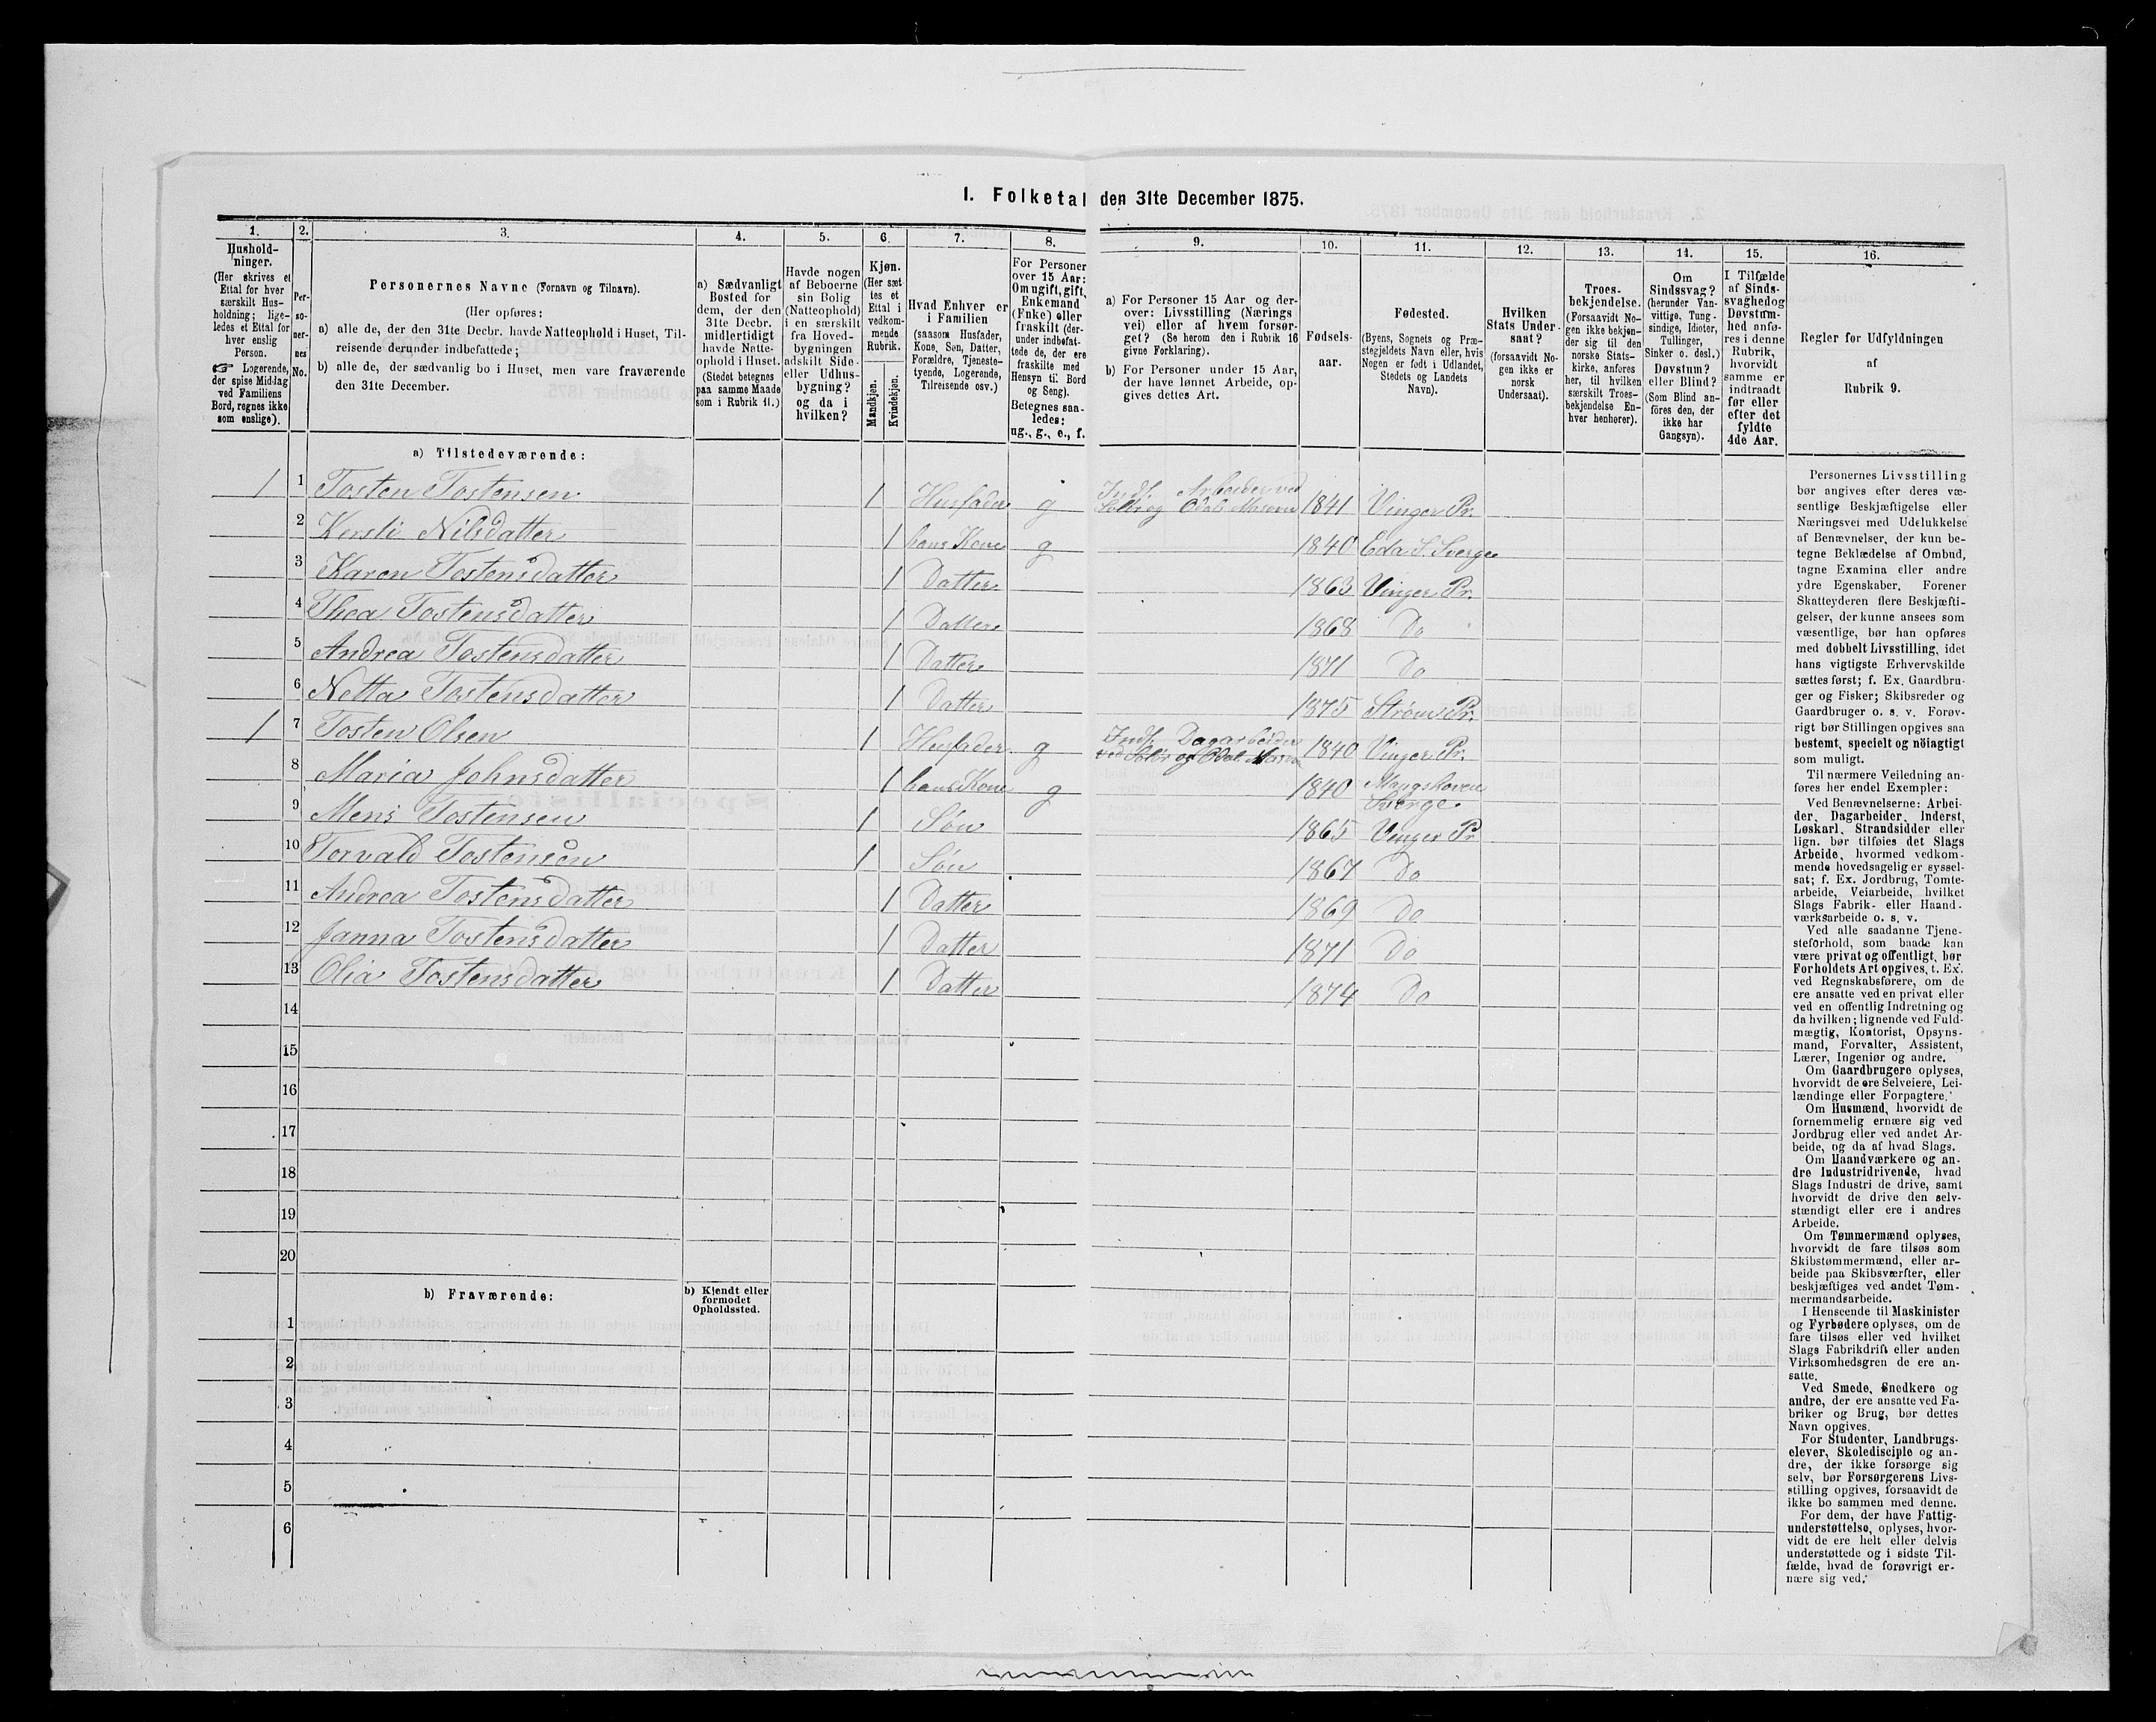 I. Folketal den 31te December 1875.
1.
Hushold-
ninger.
(Her skrives et
Ettal for hver
særskilt Hus-
holdning; lige-
ledes et Ettal for
hver enslig
Person.
☞ Logerende,
der spise Middag
ved Familiens
Bord, regnes ikke
som enslige).
2.
Per-
so-
ner-
nes
No.
3.
Personernes Navne (Fornavn og Tilnavn).
(Her opføres:
a) alle de, der den 31te Decbr. havde Natteophold i Huset, Til-
reisende derunder indbefattede;
b) alle de, der sædvanlig bo i Huset, men vare fraværende
den 31te December.
4.
a) Sædvanligt
Bosted for
dem, der den
31te Decbr.
midlertidigt
havde Natte-
ophold i Huset.
(Stedet betegnes
paa samme Maade
som i Rubrik 11.)
5.
Havde nogen
af Beboerne
sin Bolig
(Natteophold)
i en særskilt
fra Hoved-
bygningen
adskilt Side-
eller Udhus-
bygning?
og da i
hvilken?
6.
Kjøn.
(Her sæt
tes et
Ettal i
vedkom-
mende
Rubrik.
Mandkjøn.
Kvindekjøn.
7.
Hvad Enhver er
i Familien
(saasom Husfader,
Kone, Søn, Datter,
Forældre, Tjeneste-
tyende, Logerende,
Tilreisende osv.)
8.
For Personer
over 15 Aar:
Om ugift, gift,
Enkemand
(Enke) eller
fraskilt (der-
under indbefat-
tede de, der ere
fraskilte med
Hensyn til Bord
og Seng).
Betegnes saa-
ledes:
ug., g., e., f.
9.
a) For Personer 15 Aar og der-
over: Livsstilling (Nærings
vei) eller af hvem forsør-
get? (Se herom den i Rubrik 16
givne Forklaring).
b) For Personer under 15 Aar,
der have lønnet Arbeide, op-
gives dettes Art.
10.
Fødsels-
aar.
11.
Fødested.
(Byens, Sognets og Præ-
stegjeldets Navn eller, hvis
Nogen er født i Udlandet,
Stedets og Landets
Navn).
12.
Hvilken
Stats Under-
saat?
(forsaavidt No-
gen ikke er
norsk
Undersaat).
13.
Troes-
bekjendelse.
(Forsaavidt No-
gen ikke bekjen-
der sig til den
norske Stats-
kirke, anføres
her, til hvilken
særskilt Troes-
bekjendelse En-
hver henhører).
14.
Om
Sindssvag?
(herunder Van-
vittige, Tung-
sindige, Idioter,
Tullinger,
Sinker o. desl.)
Døvstum?
eller Blind?
(Som Blind an-
föres den, der
ikke har
Gangsyn).
15.
I Tilfælde
af Sinds-
svaghedog
Døvstum-
hed anfø-
res i denne
Rubrik,
hvorvidt
samme er
indtraadt
før eller
efter det
fyldte
4de Aar.
16.
Regler for Udfyldningen
af
Rubrik 9.
a) Tilstedeværende:
1 1 Tosten Tostensen 1 Husfader g Indr. Arbeider ved
Solør og Odals Masovn 1841 Vinger Pr.
2 Kersti Nilsdatter 1 hans Kone g 1840 Eda S Sverge
3 Karen Tostensdatter 1 Datter 1863 Vinger Pr.
4 Thea Tostensdatter 1 Datter 1868 Do
5 Andrea Tostensdatter 1 Datter 1871 Do
6 Netta Tostensdatter 1 Datter 1875 Strøm Pr.
1 7 Tosten Olsen 1 Husfader g Indr. Dagarbeider
ved Solør og Odal Masovn 1840 Vinger Pr.
8 Maria Johnsdatter 1 hans Kone g 1840 Mangskoven
Sverge
9 Mens Tostensen 1 Søn 1865 Vinger Pr
10 Torvald Tostensen 1 Søn 1867 Do
11 Andrea Tostensdatter 1 Datter 1869 Do
12 Janna Tostensdatter 1 Datter 1871 Do
13 Olia Tostensdatter 1 Datter 1874 Do
14
15
16
17
18
19
20
b) Fraværende:
b) Kjendt eller
formodet
Opholdssted.
1
2
3
4
5
6
Personernes Livsstilling
bør angives efter deres væ-
sentlige Beskjæftigelse eller
Næringsvei med Udelukkelse
af Benævnelser, der kun be-
tegne Beklædelse af Ombud,
tagne Examina eller andre
ydre Egenskaber. Forener
Skatteyderen flere Beskjæfti-
gelser, der kunne ansees som
væsentlige, bør han opføres
med dobbelt Livsstilling, idet
hans vigtigste Erhvervskilde
sættes først; f. Ex. Gaardbru-
ger og Fisker; Skibsreder og
Gaardbruger o. s. v. Forøv-
rigt bør Stillingen opgives saa
bestemt, specielt og nöiagtigt
som muligt.
Til nærmere Veiledning an-
føres her endel Exempler:
Ved Benævnelserne: Arbei-
der, Dagarbeider, Inderst,
Løskarl, Strandsidder eller
lign. bør tilføies det Slags
Arbeide, hvormed vedkom-
mende hovedsagelig er syssel-
sat; f. Ex. Jordbrug, Tomte-
arbeide, Veiarbeide, hvilket
Slags Fabrik- eller Haand-
værksarbeide o. s. v.
Ved alle saadanne Tjene-
steforhold, som baade kan
være privat og offentligt, bør
Forholdets Art opgives, t. Ex.
ved Regnskabsførere, om de
ere ansatte ved en privat eller
ved en offentlig Indretning og
da hvilken; lignende ved Fuld-
mægtig, Kontorist, Opsyns-
mand, Forvalter, Assistent,
Lærer, Ingeniør og andre.
Om Gaardbrugere oplyses,
hvorvidt de ere Selveiere, Lei-
lændinge eller Forpagtere.
Om Husmænd, hvorvidt de
fornemmelig ernære sig ved
Jordbrug eller ved andet Ar-
beide, og da af hvad Slags.
Om Haandværkere og an-
dre Industridrivende, hvad
Slags Industri de drive, samt
hvorvidt de drive den selv-
stændigt eller ere i andres
Arbeide.
Om Tømmermænd oplyses,
hvorvidt de fare tilsøs som
Skibstømmermænd, eller ar-
beide paa Skibsværfter, eller
beskjæftiges ved andet Tøm-
mermandsarbeide.
I Henseende til Maskinister
og Fyrbødere oplyses, om de
fare tilsøs eller ved hvilket
Slags Fabrikdrift eller anden
Virksomhedsgren de ere an-
satte.
Ved Smede, Snedkere og
andre, der ere ansatte ved Fa-
briker og Brug, bør dettes
Navn opgives.
For Studenter, Landbrugs-
elever, Skoledisciple og an-
dre, der ikke forsørge sig
selv, bør Forsørgerens Livs-
stilling opgives, forsaavidt de
ikke bo sammen med denne.
For dem, der have Fattig-
understøttelse, oplyses, hvor-
vidt de ere helt eller delvis
understøttede og i sidste Til-
fælde, hvad de forøvrigt er-
nære sig ved.